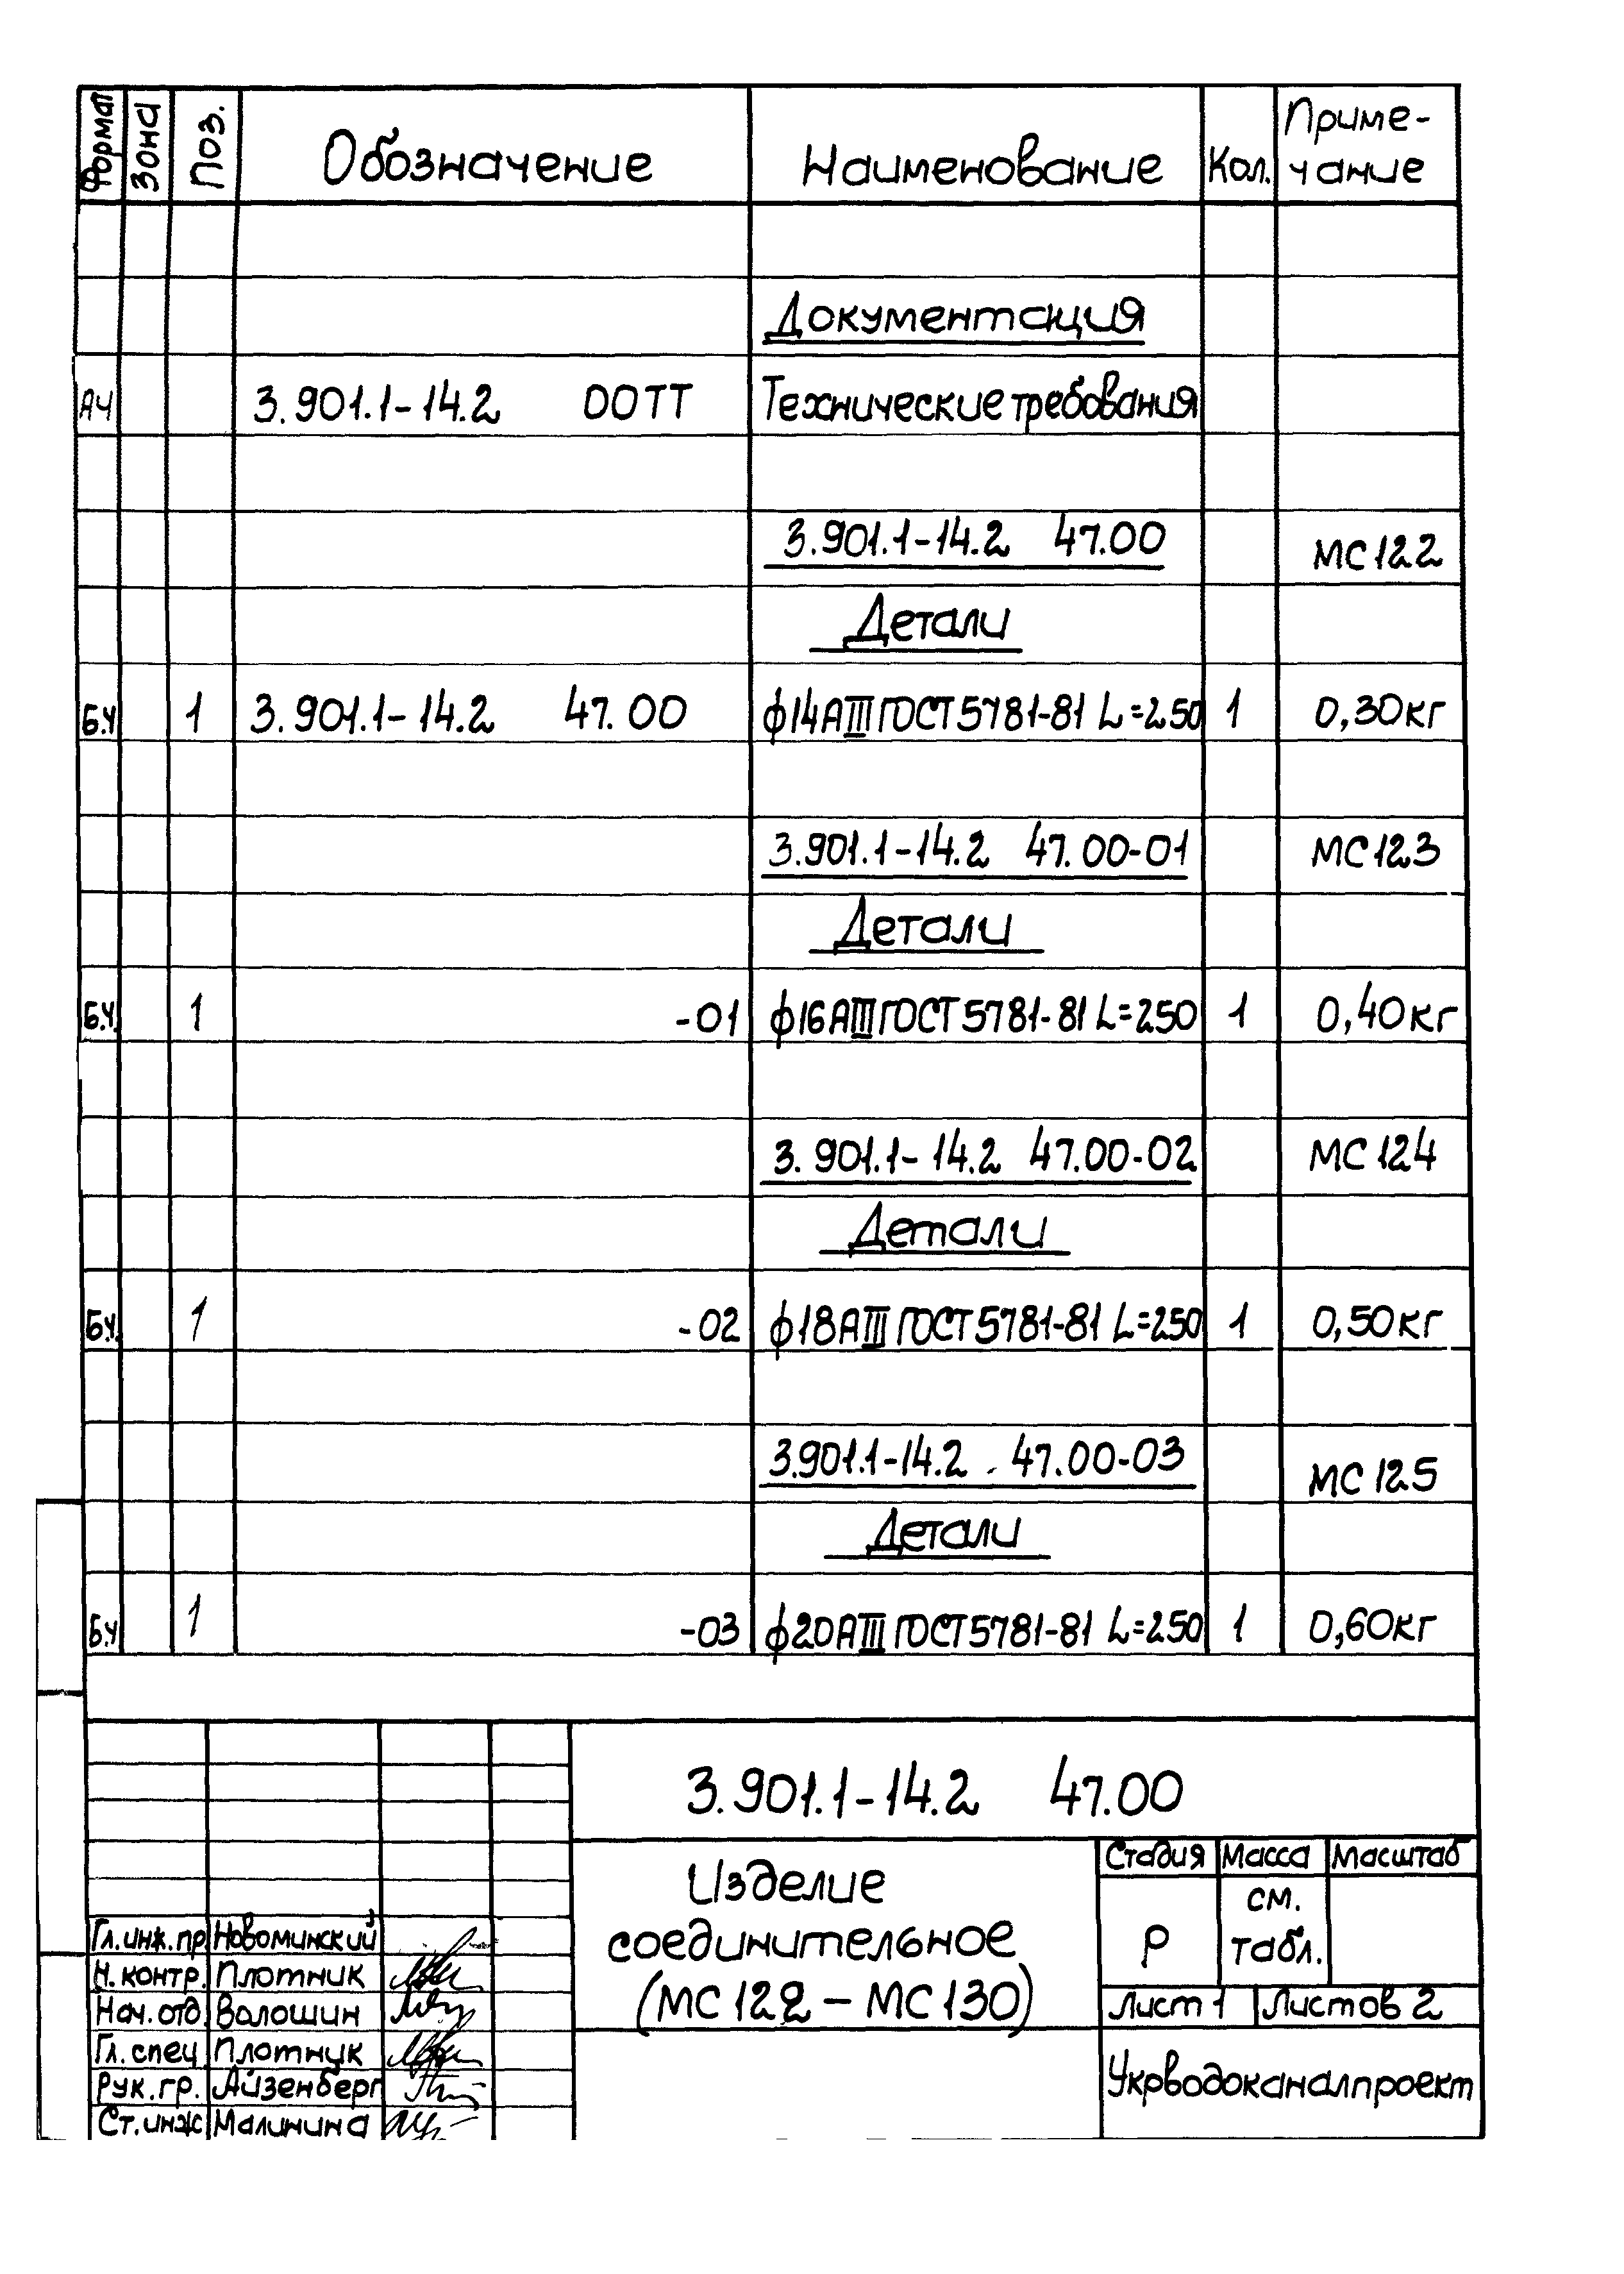 Формат Зона Поз. Обозначение Наименование Кол. Приме-
чание
Документация
А4 3.901.1-14.2 00ТТ Технические требования
3.901.1-14.2 47.00 МС122
Детали
Б.Ч 1 3.901.1-14.2 47.00 ф14АIII ГОСТ 5781-81 L=250 1 0,30кг
3.901.1-14.2 47.00-01 МС123
Детали
Б.Ч. 1 -01 ф16АIII ГОСТ 5781-81 L=250 1 0,40кг
3.901.1-14.2 47.00-02 МС124
Детали
Б.Ч. 1 -02 ф18АIII ГОСТ 5781-81 L=250 1 0,50кг
3.901.1-14.2 47.00-03 МС125
Детали
Б.Ч 1 -03 ф20АIII ГОСТ 5781-81 L=250 1 0,60кг
3.901.1-14.2 47.00
Изделие
соединительное
(МС122 – МС130)
Стадия Масса Масштаб
Р см.
табл.
Лист 1 Листов 2
Укрводоканалпроект
Гл.инж.пр Новоминский
Н.контр. Плотник
Нач.отд. Волошин
Гл.спец Плотник
Рук.гр. Айзенберг
Ст.инж Малинина